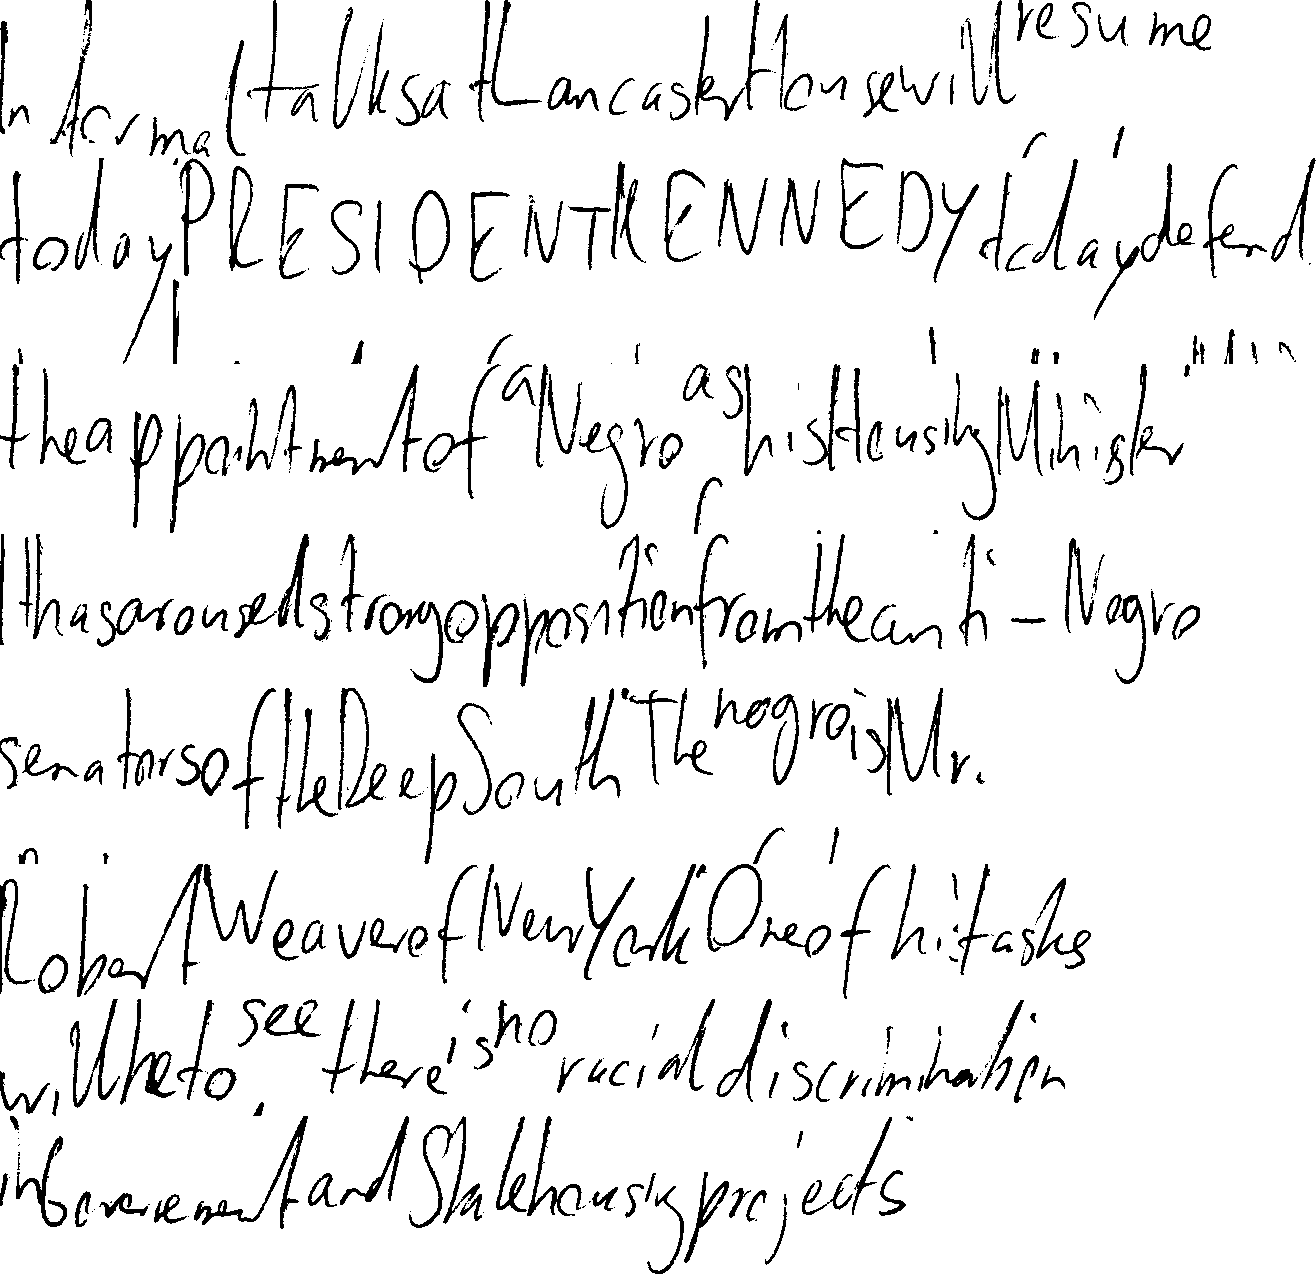 Informal talks at Lancaster House will resume
today PRESIDENT KENNEDY today defend
the appointment of a Negro as his Housing Minister
It has aroused strong opposition from the anti - Negro
senators of the Deep South The negro is Mr.
Robert Weaver of New York One of his tasks
will be to see there is no racial discrimination
in Government and State housing projects